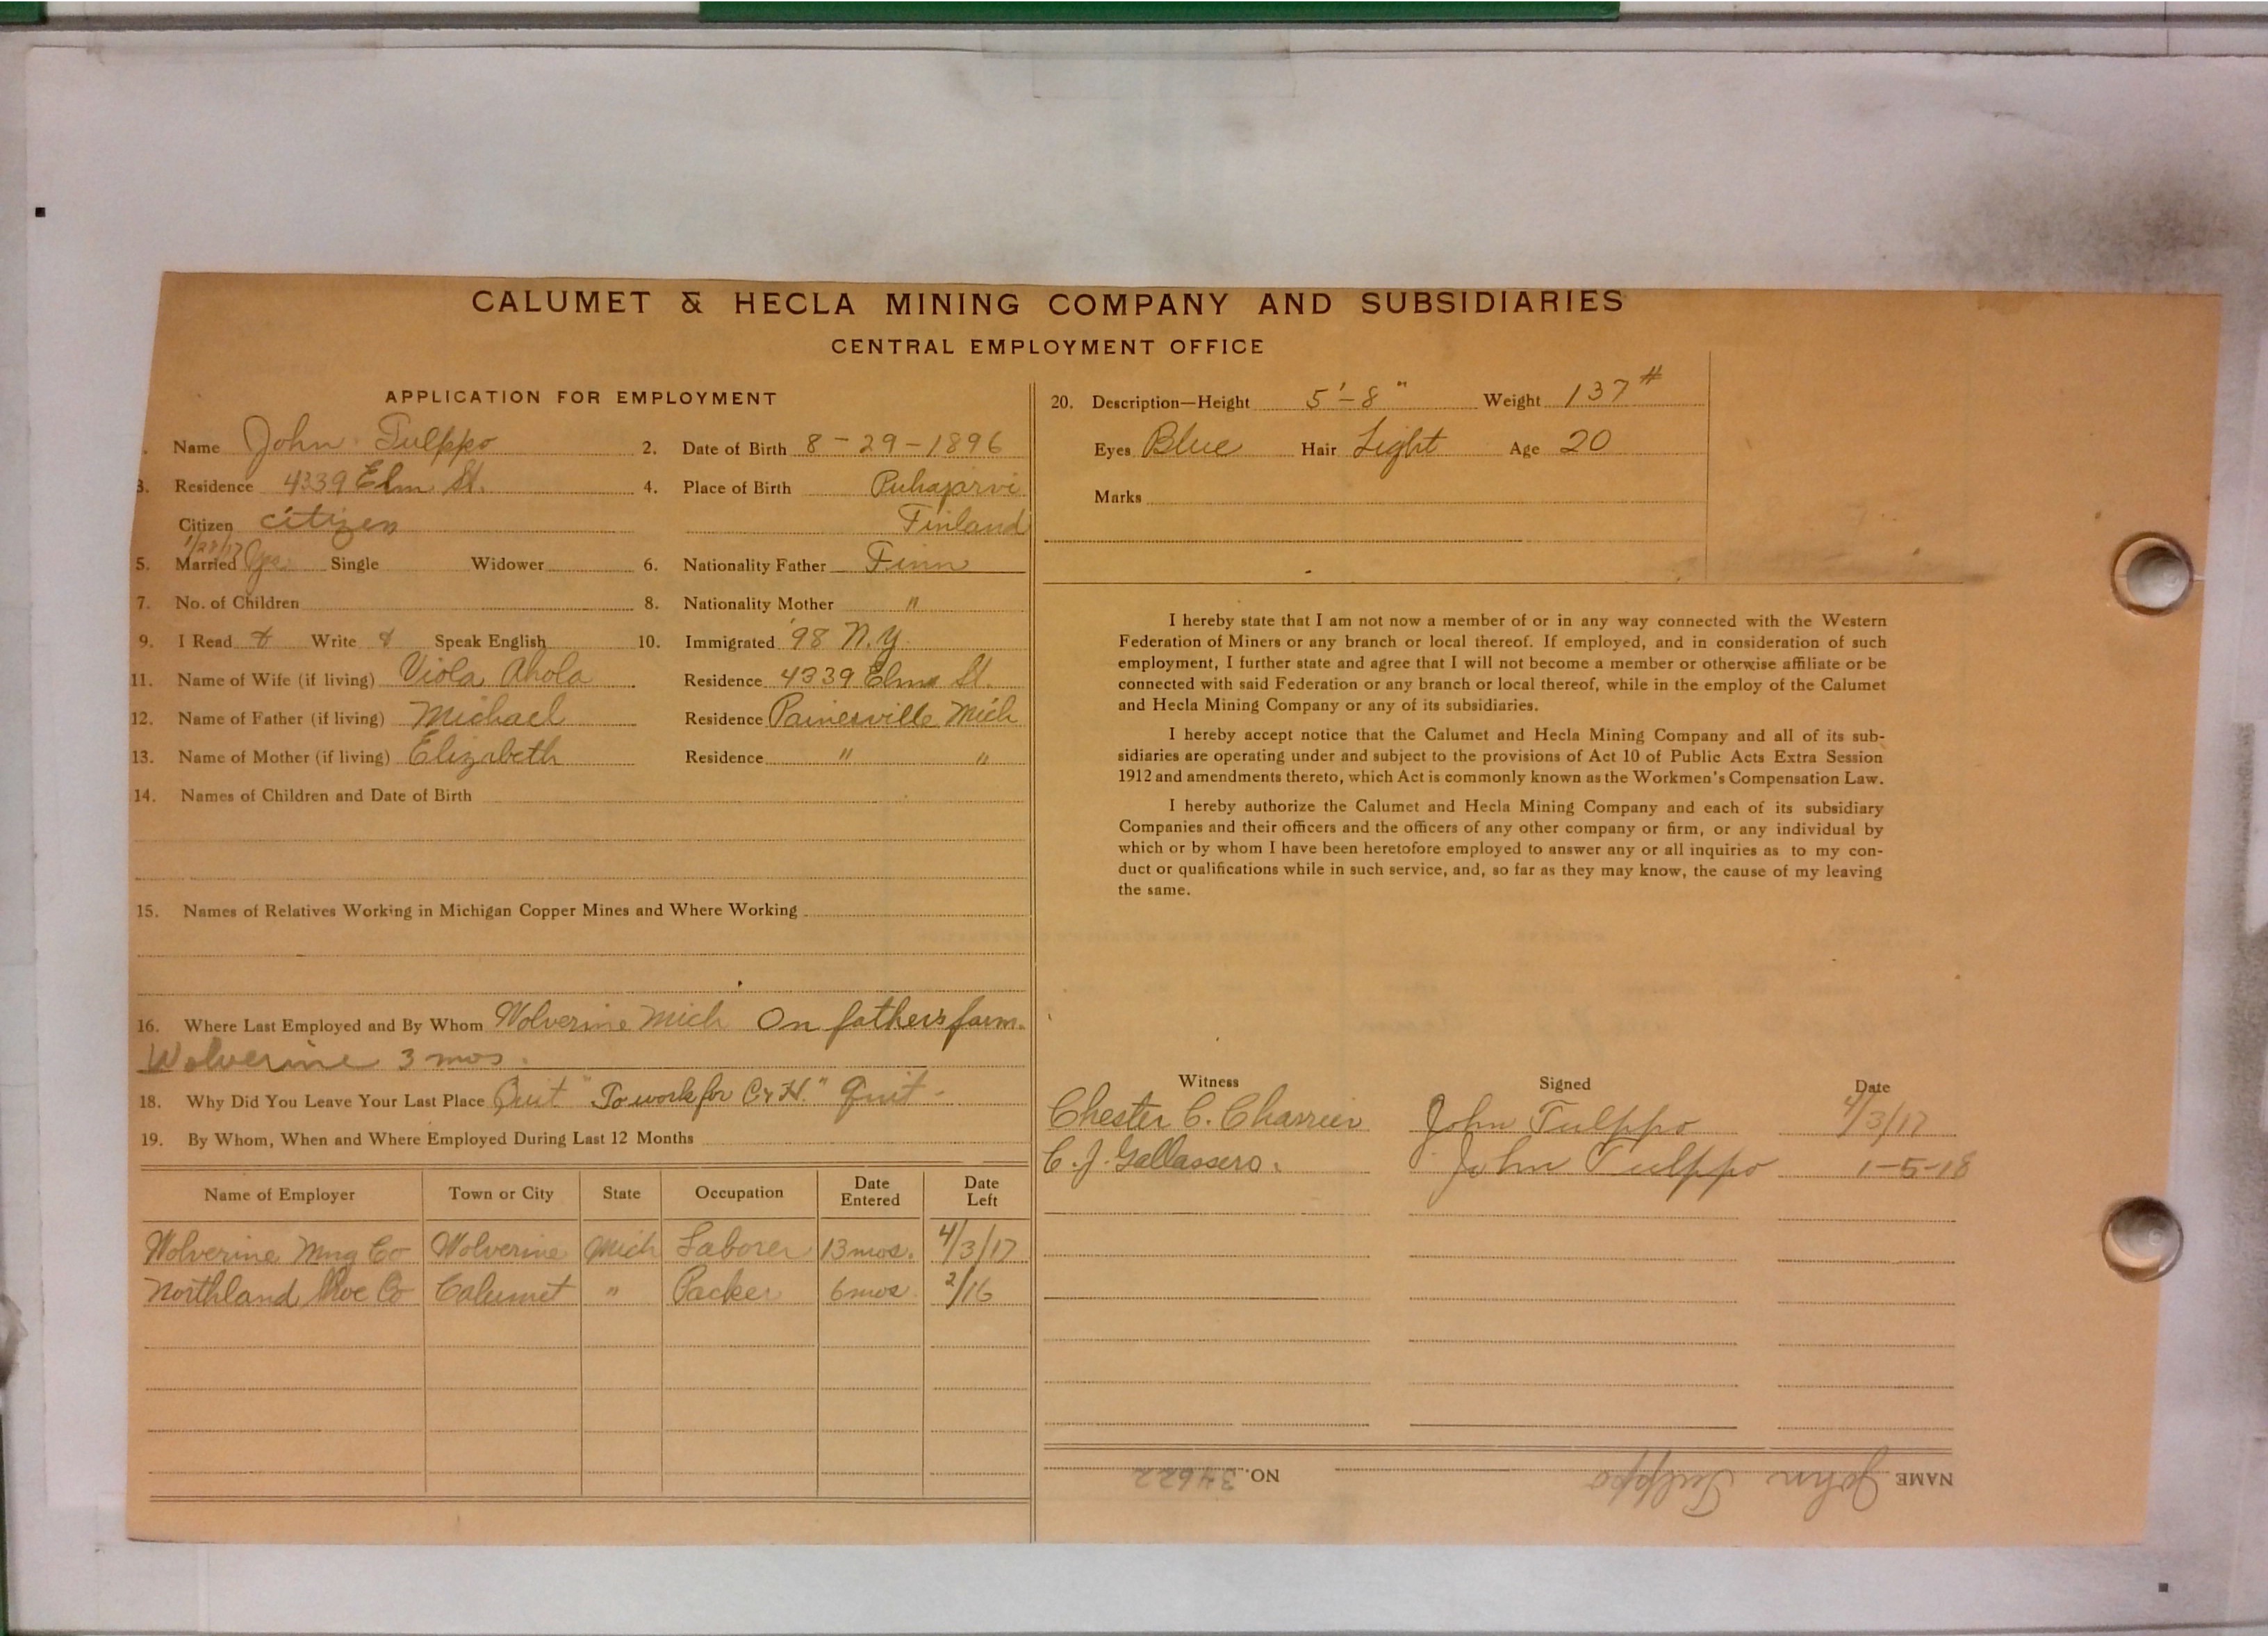 CALUMET & HECLA MINING COMPANY AND SUBSIDIARIES
CENTRAL EMPLOYMENT OFFICE
APPLICATION FOR EMPLOYMENT
Name John Tulppo 2. Date of Birth 8-29-1896
3. Residence 4339 Elm St. 4. Place of Birth Puhajarvi
Citizen citizen Finland
1/28/17
5. Married Yes Single Widower 6. Nationality Father Finn
7. No. of Children 8. Nationality Mother "
9. I Read & Write & Speak English 10. Immigrated '98 N.Y.
11. Name of Wife (if living) Viola Ahola Residence 4339 Elm St.
12. Name of Father (if living) Michael Residence Painesville Mich
13. Name of Mother (if living) Elizabeth Residence " "
14. Names of Children and Date of Birth
15. Names of Relatives Working in Michigan Copper Mines and Where Working
16. Where Last Employed and By Whom Wolverine Mich On fathers farm.
Wolverine 3 mos.
18. Why Did You Leave Your Last Place Quit "To work for C & H." Quit -
19. By Whom, When and Where Employed During Last 12 Months
Name of Employer Town or City State Occupation Date Entered Date Left
Wolverine Mng Co Wolverine Mich Laborer 13 mos. 4/3/17
Northland Shoe Co Calumet " Packer 6 mos 2/16
20. Description—Height 5'-8" Weight 137#
Eyes Blue Hair Light Age 20
Marks
I hereby state that I am not now a member of or in any way connected with the Western
Federation of Miners or any branch or local thereof. If employed, and in consideration of such
employment, I further state and agree that I will not become a member or otherwise affiliate or be
connected with said Federation or any branch or local thereof, while in the employ of the Calumet
and Hecla Mining Company or any of its subsidiaries.
I hereby accept notice that the Calumet and Hecla Mining Company and all of its sub-
sidiaries are operating under and subject to the provisions of Act 10 of Public Acts Extra Session
1912 and amendments thereto, which Act is commonly known as the Workmen's Compensation Law.
I hereby authorize the Calumet and Hecla Mining Company and each of its subsidiary
Companies and their officers and the officers of any other company or firm, or any individual by
which or by whom I have been heretofore employed to answer any or all inquiries as to my con-
duct or qualifications while in such service, and, so far as they may know, the cause of my leaving
the same.
Witness Signed Date
Chester C. Charrier John Tulppo 4/3/17
C. J. Gallassero. John Tulppo 1-5-18
NAME John Tulppo NO. 34622